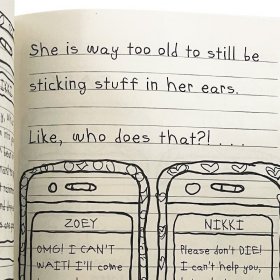 She is way too old to still be
sticking stuff in her ears.
Like, who does that?! . . .
ZOEY
OMG! I CAN'T
WAIT! I'll come
NIKKI
Please don't DIE!
I can't help you,